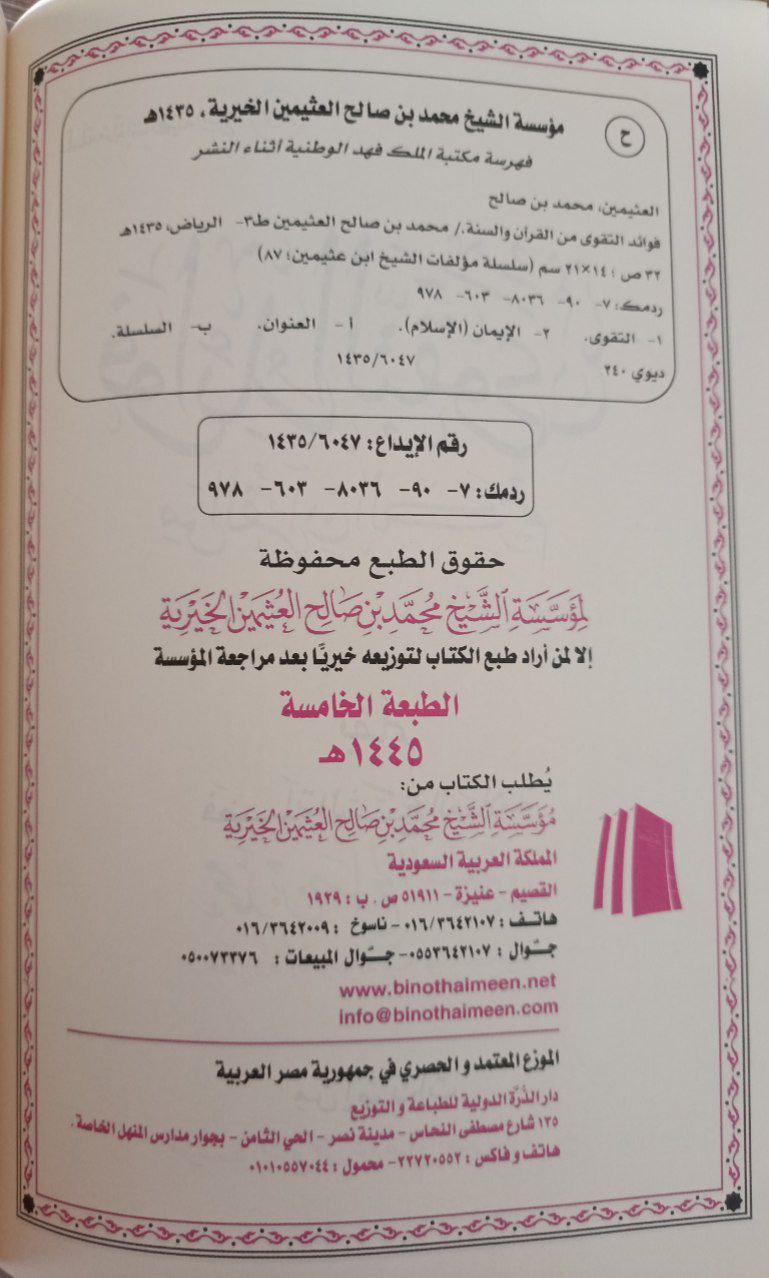 ح
مؤسسة الشيخ محمد بن صالح العثيمين الخيرية، ١٤٣٥هـ
فهرسة مكتبة الملك فهد الوطنية أثناء النشر
العثيمين، محمد بن صالح
فوائد التقوى من القرآن والسنة./ محمد بن صالح العثيمين ط٣- الرياض، ١٤٣٥هـ
٣٢ ص؛ ١٤×٢١ سم (سلسلة مؤلفات الشيخ ابن عثيمين؛ ٨٧)
ردمك: ٧- ٩٠- ٨٠٣٦- ٦٠٣- ٩٧٨
١- التقوى. ٢- الإيمان (الإسلام). أ- العنوان. ب- السلسلة.
ديوي ٢٤٠ ١٤٣٥/٦٠٤٧
رقم الإيداع: ١٤٣٥/٦٠٤٧
ردمك: ٧- ٩٠- ٨٠٣٦- ٦٠٣- ٩٧٨
حقوق الطبع محفوظة
لِمُؤَسَّسَةِ الشَّيْخِ مُحَمَّدِ بْنِ صَالِحِ العُثَيْمِين الخَيْرِيَّةِ
إلا لمن أراد طبع الكتاب لتوزيعه خيريًا بعد مراجعة المؤسسة
الطبعة الخامسة
١٤٤٥هـ
يُطلب الكتاب من:
مُؤَسَّسَةِ الشَّيْخِ مُحَمَّدِ بْنِ صَالِحِ العُثَيْمِين الخَيْرِيَّةِ
المملكة العربية السعودية
القصيم - عنيزة - ٥١٩١١ ص. ب: ١٩٢٩
هاتف: ٠١٦/٣٦٤٢١٠٧ - ناسوخ: ٠١٦/٣٦٤٢٠٠٩
جوّال: ٠٥٥٣٦٤٢١٠٧ - جوّال المبيعات: ٠٥٠٠٧٣٣٧٦
www.binothaimeen.net
info@binothaimeen.com
الموزع المعتمد والحصري في جمهورية مصر العربية
دار الدُّرَّة الدولية للطباعة و التوزيع
١٣٥ شارع مصطفى النحاس - مدينة نصر - الحي الثامن - بجوار مدارس المنهل الخاصة.
هاتف و فاكس: ٢٢٧٢٠٥٥٢ - محمول: ٠١٠١٠٥٥٧٠٤٤